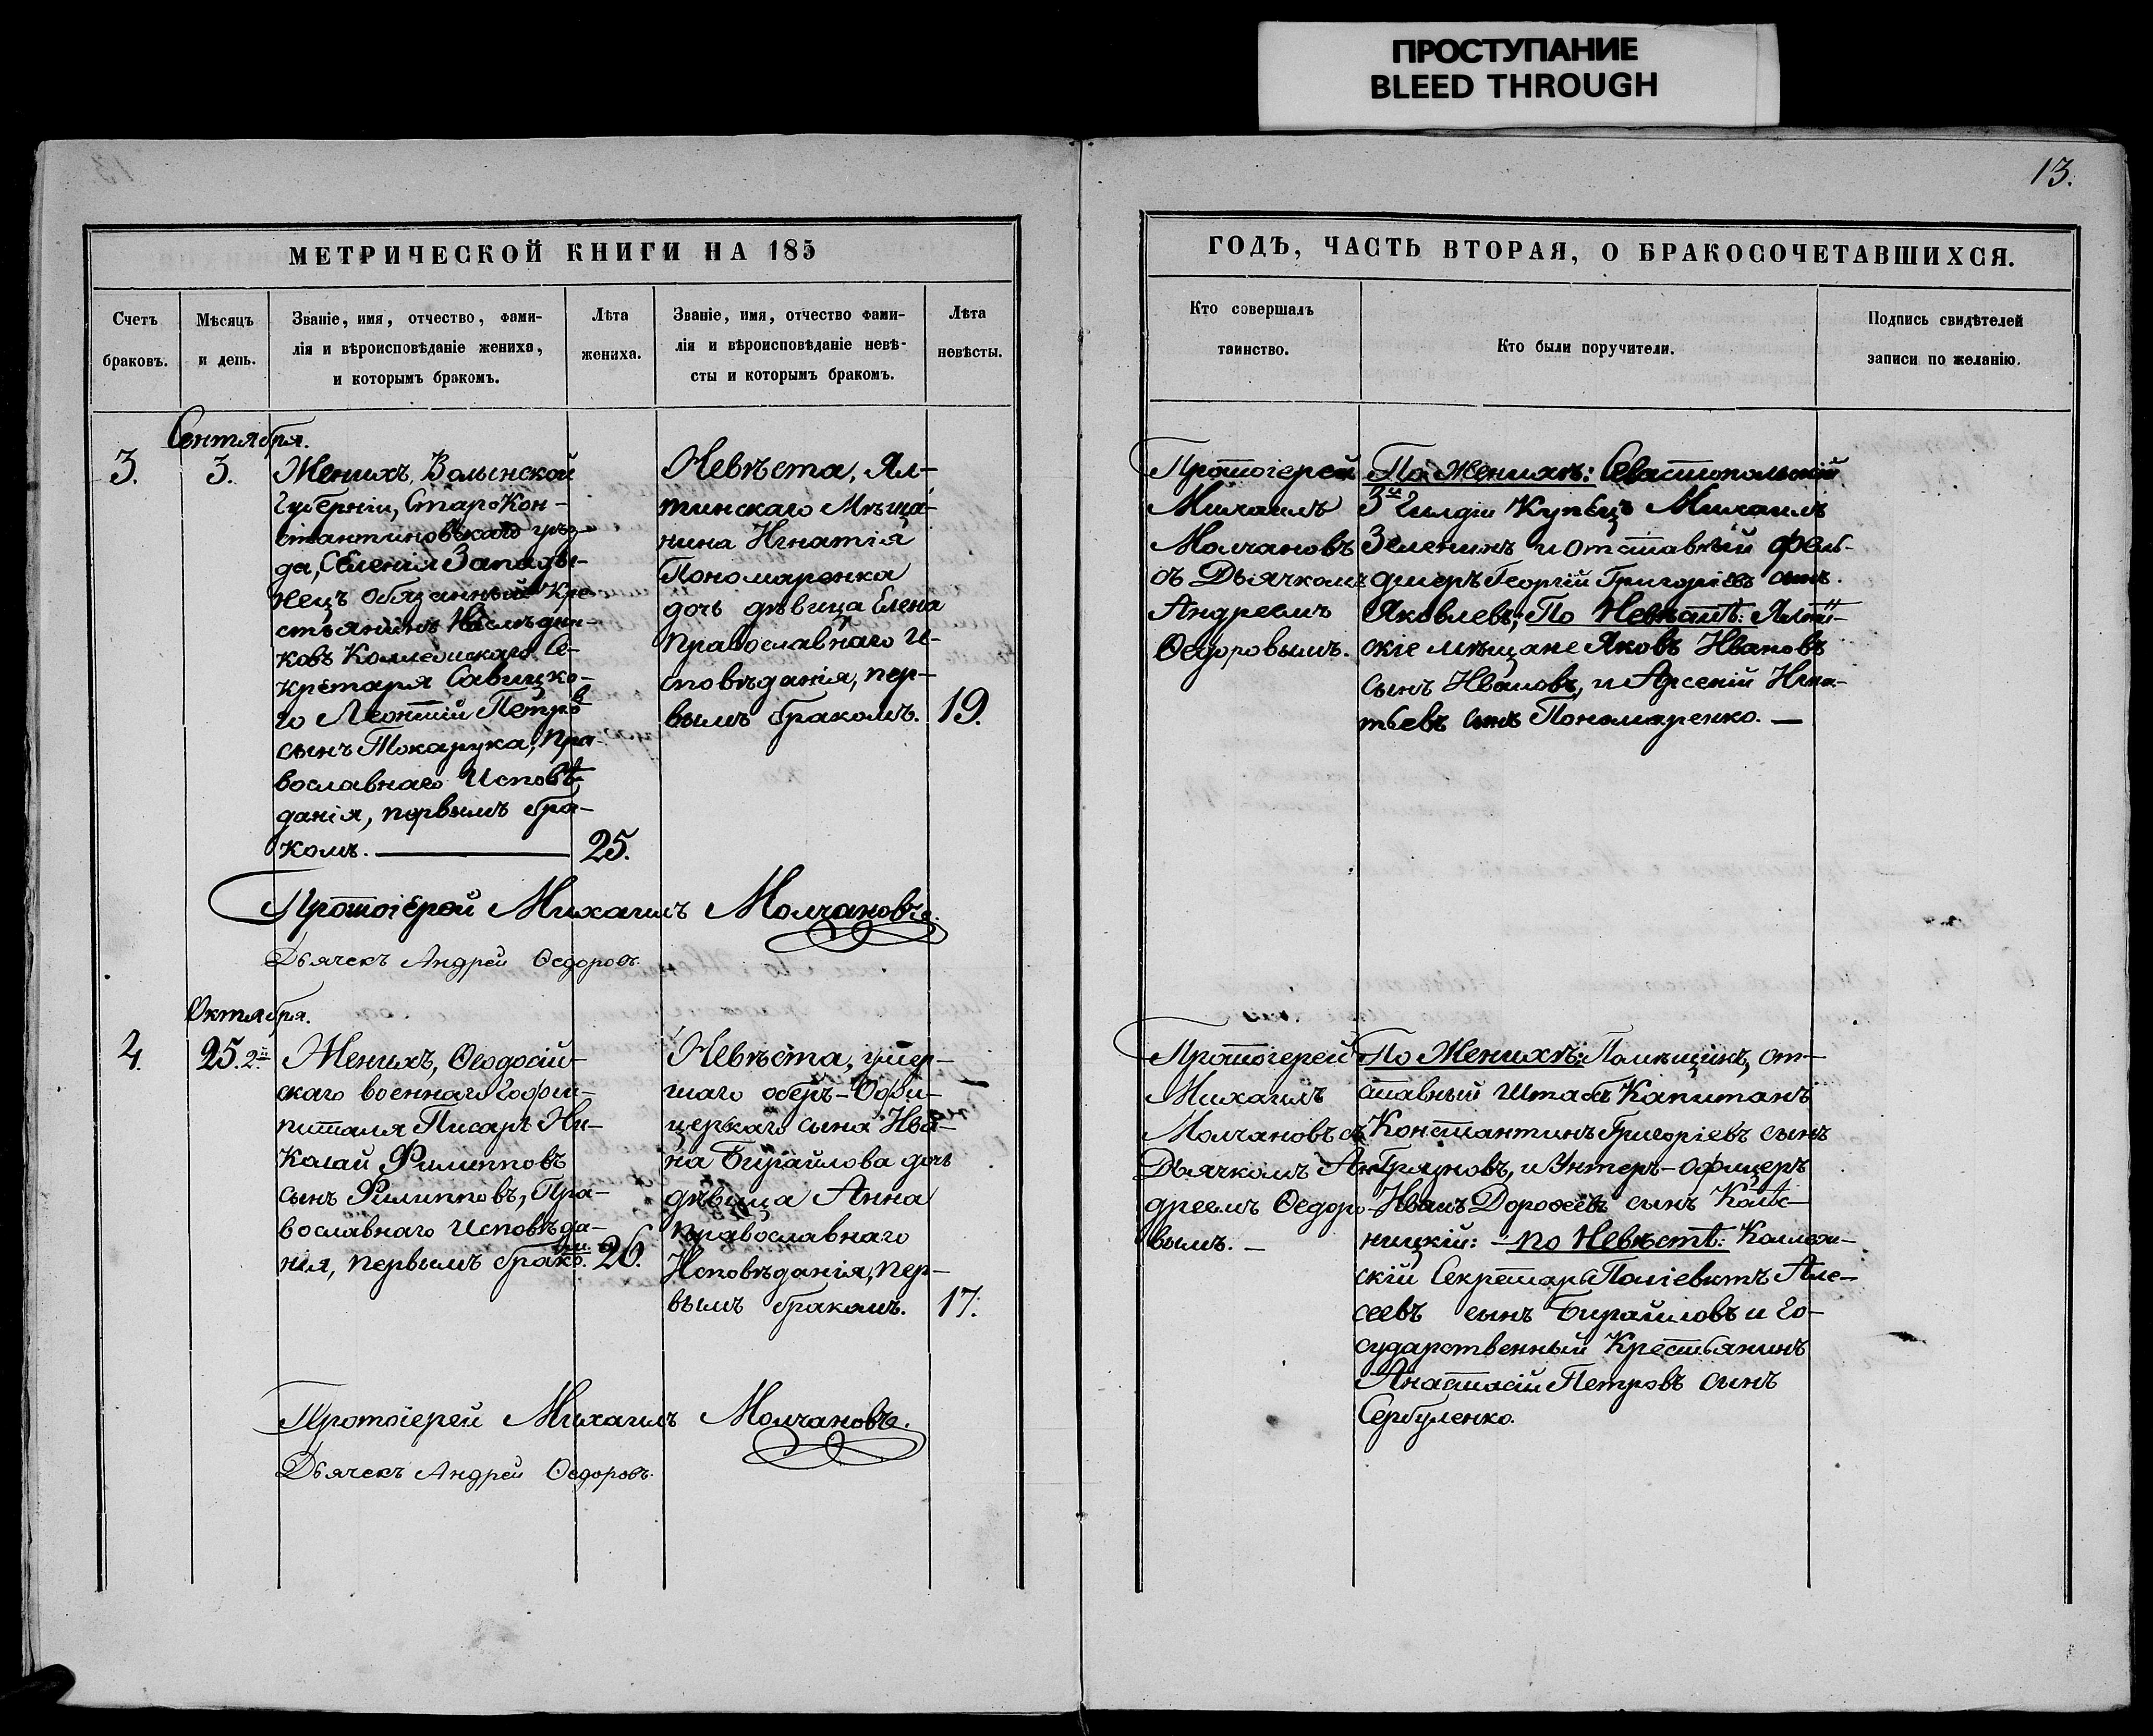 ПРОСТУПАНИЕ
BLEED THROUGH
13.
МЕТРИЧЕСКОЙ КНИГИ НА 185
Счетъ
браковъ.
Мѣсяцъ
и день.
Званіе, имя, отчество, фами-
лія и вѣроисповѣданіе жениха,
и которымъ бракомъ.
Лѣта
жениха.
Званіе, имя, отчество фами-
лія и вѣроисповѣданіе невѣ-
сты и которымъ бракомъ.
Лѣта
невѣсты.
Сентября.
3.
3.
Женихъ, Волынской
Губерніи, СтароКон-
стантиновскаго уѣз-
да, Селенія Запади-
нецъ обязанный Кре-
стьянинъ Наслѣдни-
ковъ Коллежскаго Се-
кретаря Савицко-
го Леонтій Петровъ
сынъ Токарука, Пра-
вославнаго Исповѣ-
данія, первымъ бра-
комъ.
25.
Невѣста, Ял-
тинскаго Мѣща-
нина Игнатія
Пономаренка
дочь дѣвица Елена
Православнаго И-
сповѣданія, пер-
вымъ бракомъ.
19.
Протоіерей Михаилъ Молчановъ.
Дьячекъ Андрей Ѳедоровъ.
Октября.
4.
25. 2й
Женихъ, Ѳеодосій-
скаго военнаго Гофши-
питаля Писарь Ни-
колай Филипповъ
сынъ Филипповъ, Пра-
вославнаго Исповѣда-
нія, первымъ бракомъ.
26.
Невѣста, умер-
шаго оберъ-Офи-
церскаго сына Ива-
на Бирайлова дочь
дѣвица Анна
православнаго
Исповѣданія, пер-
вымъ бракомъ.
17.
Протоіерей Михаилъ Молчановъ.
Дьячекъ Андрей Ѳедоровъ.
ГОДЪ, ЧАСТЬ ВТОРАЯ, О БРАКОСОЧЕТАВШИХСЯ.
Кто совершалъ
таинство.
Кто были поручители.
Подпись свидѣтелей
записи по желанію.
Протоіерей
Михаилъ
Молчановъ
съ Дьячкомъ
Андреемъ
Ѳедоровымъ.
По Женихѣ: Севастопольскій
3й Гилдіи Купецъ Михаилъ
Зеленинъ и отставный фель-
дшеръ Георгій Григоріевъ сынъ
Яковлевъ; По Невѣстѣ: Ялтин-
скіе мѣщане Яковъ Ивановъ
сынъ Ивановъ, и Арсеній Игна-
тьевъ сынъ Пономаренко. —
Протоіерей
Михаилъ
Молчановъ съ
Дьячкомъ Ан-
дреемъ Ѳедоро-
вымъ. —
По Женихѣ: Помѣщикъ, от-
ставный Штабъ Капитанъ
Константинъ Григоріевъ сынъ
и Унтеръ-офицеръ
Иванъ Дороѳеевъ сынъ
ницкій: — по Невѣстѣ: Коллеж-
скій Секретарь Алек-
сеевъ сынъ Бирайловъ и Го-
сударственный Крестьянинъ
Анастасій Петровъ сынъ
Сербуленко.